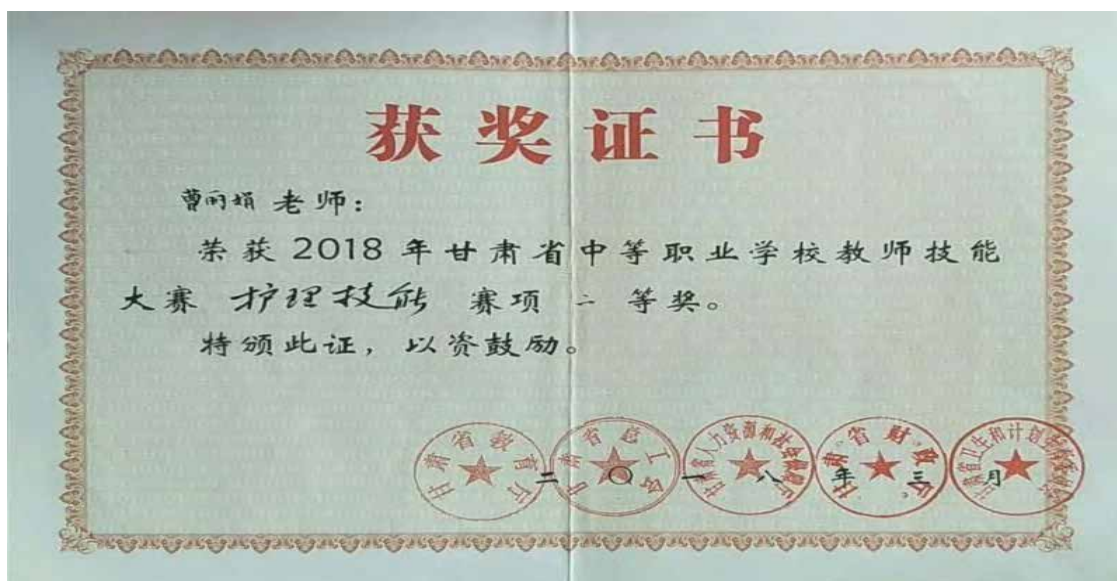 获奖证书
曹丽娟 老师:
荣获 2018 年甘肃省中等职业学校教师技能
大赛 护理技能 赛项 二 等奖。
特颁此证,以资鼓励。
甘肃省教育厅
甘肃省总工会
甘肃省人力资源和社会保障厅
甘肃省财政厅
甘肃省卫生和计划生育委员会
二〇一八年三月